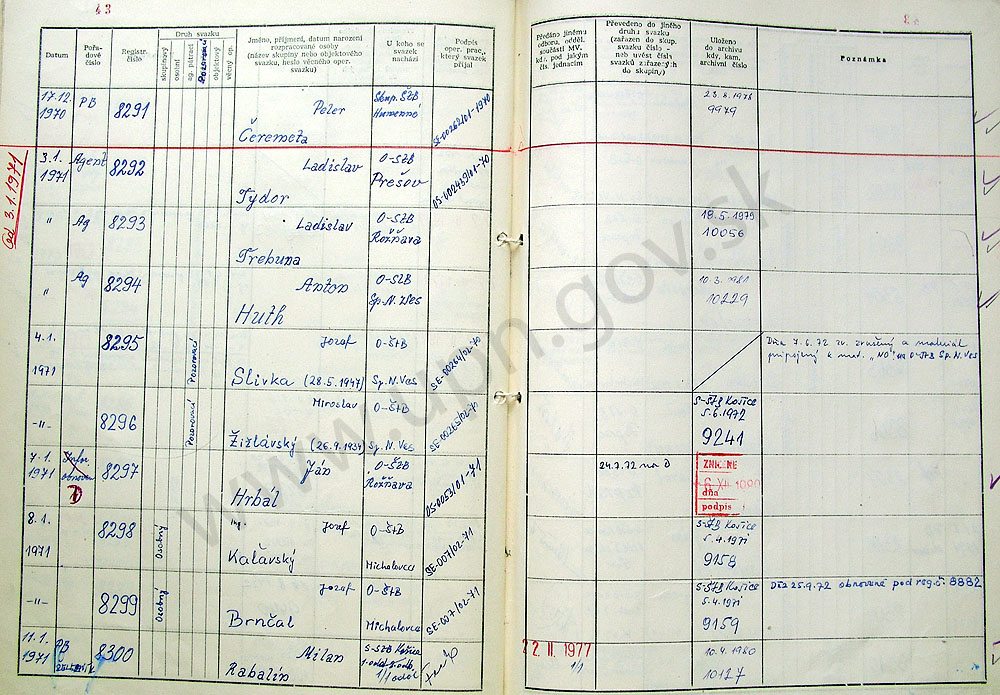 43
Datum
Pořadové číslo
Registr. číslo
Druh svazku
skupinový
osobní
ag. pátrací
Pozorovací
objektový
věcný op.
Jméno, příjmení, datum narození
rozpracované osoby
(název skupiny nebo objektového
svazku, heslo věcného oper.
svazku)
U koho se
svazek
nachází
Podpis
oper. prac.,
který svazek
přijal
Předáno jinému
odboru, odděl.
součásti MV.
kdy, pod jakým
čís. jednacím
Převedeno do jiného
druhu svazku
(zařazen do skup.
svazku číslo -
neb uvést čísla
svazků zařazených
do skupiny)
Uloženo
do archivu
kdy, kam,
archivní číslo
Poznámka
17.12. 1970 PB 8291 Peter Čeremeta Skup. ŠtB Humenné SE-00262/01-1970
23.8.1978
9979
Od 3.1.1971
3.1. 1971 Agent 8292 Ladislav Tydor O-ŠtB Prešov OS-002439/01-70
" Ag 8293 Ladislav Trebuna O-ŠtB Rožňava
18.5.1979
10056
" Ag 8294 Anton Huth O-ŠtB Sp. N. Ves
10.3.1981
10229
4.1. 1971 8295 Pozorovací Jozef Slivka (28.5.1947) O-ŠtB Sp. N. Ves SE-00264/02-70
Dňa 7.6.72 zv. zrušený a materiál
pripojený k mat. „NO" na O-ŠtB Sp. N. Ves
-"- 8296 Pozorovací Miroslav Žižlavský (26.9.1934) O-ŠtB Sp. N. Ves SE-00265/02-70
S-ŠTB Košice
5.6.1972
9241
7.1. 1971 8297 Ján Hrbál O-ŠtB Rožňava OS-0053/01-71
24.7.72 na D
ZNIČENÉ
dňa
podpis
8.1. 1971 8298 Osobný Ing. Jozef Kaťavský O-ŠtB Michalovce SE-007/02-71
S-ŠTB Košice
5.4.1971
9158
-"- 8299 Osobný Jozef Brnčal O-ŠtB Michalovce SE-007/02-71
S-ŠTB Košice
5.4.1971
9159
Dňa 25.9.72 obnovené pod reg. č. 8882
11.1. 1971 PB 8300 Milan Rabalín S-ŠtB Košice
22. II. 1977
1/1
10.4.1980
10127
www.upn.gov.sk